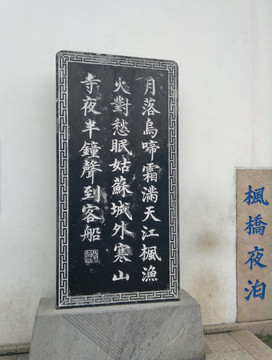 楓橋夜泊
月落烏啼霜滿天江楓漁
火對愁眠姑蘇城外寒山
寺夜半鐘聲到客船